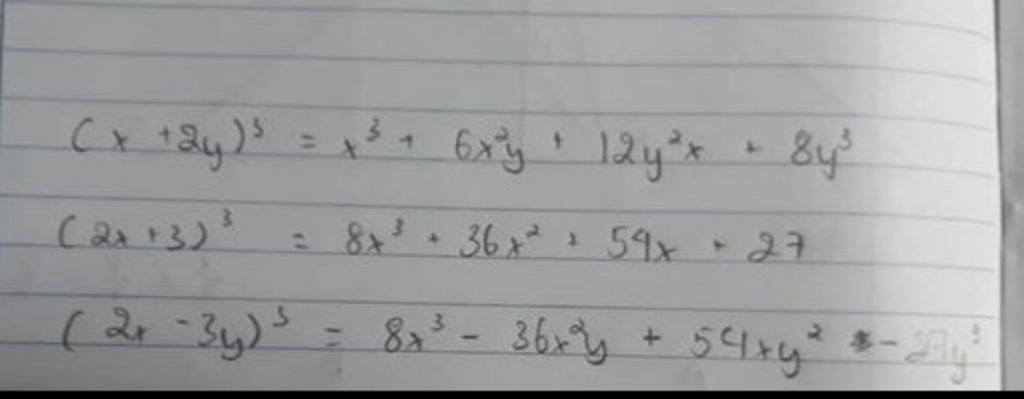 (x + 2y)³ = x³ + 6x²y + 12y²x + 8y³
(2x + 3)³ = 8x³ + 36x² + 54x + 27
(2x - 3y)³ = 8x³ - 36x²y + 54xy² - 27y³